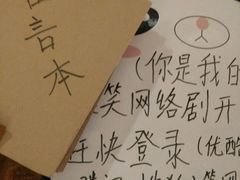 言本
(你是我的
笑网络剧开
赶快登录(优酷